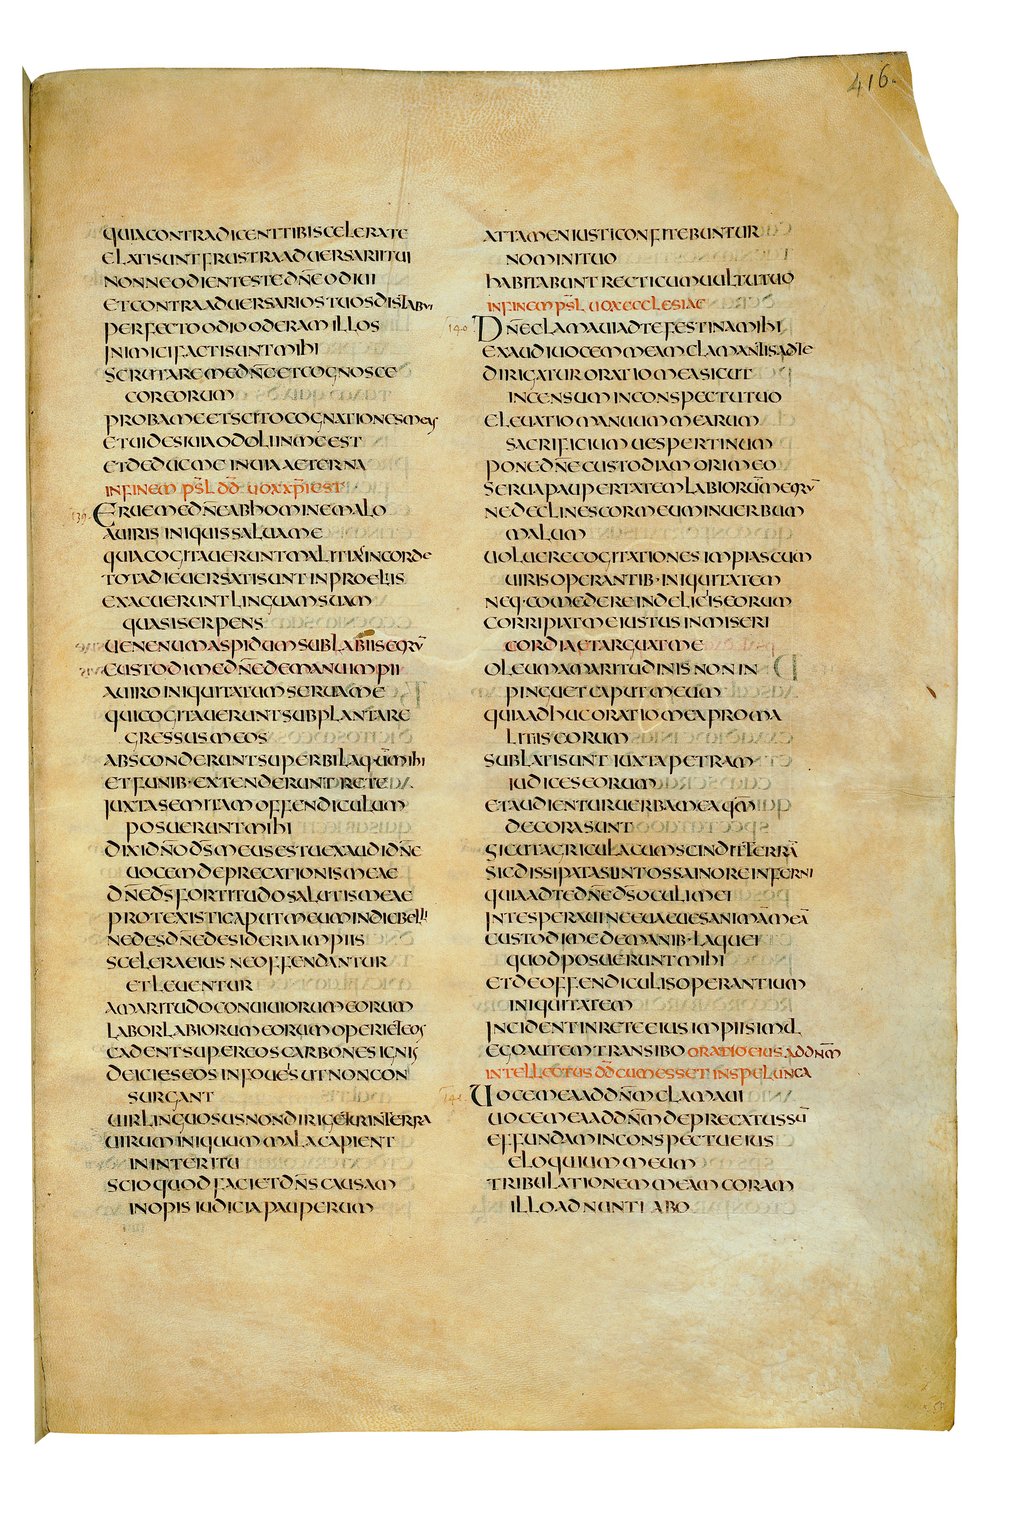 416.
QUIACONTRADICENTTIBISCELERATE
ELATISUNTFRUSTRAADUERSARIITUI
NONNEODIENTESTEDN̄EODIUI
ETCONTRAADUERSARIOSTUOSDISTABUI
PERFECTOODIOODERAMILLOS
INIMICIFACTISUNTMIHI
SCRUTAREMEDN̄EETCOGNOSCE
COREORUM
PROBAMEETSCITOCOGNATIONESMEAS
ETUIDESIUIAODOLIINMEEST
ETDEDUCMEINUIAAETERNA
INFINEM PSL̄ DD̄ UOXXP̄IEST
139. ERUEMEDN̄EABHOMINEMALO
AUIRIS INIQUISSALUAME
QUIACOGITAUERUNTMALITIĀINCORDE
TOTADIEUERSATISUNTINPROELIIS
EXACUERUNTLINGUAMSUAM
QUASISERPENS
UENENUMASPIDUMSUBLABIISEORŪ
CUSTODIMEDN̄EDEMANUIMPII
AUIROINIQUITATUMSERUAME
QUICOGITAUERUNTSUBPLANTARE
GRESSUSMEOS
ABSCONDERUNTSUPERBILAQ·ŪMIHI
ETFUNIB·EXTENDERUNTRETE
IUXTASEMITAMOFFENDICULUM
POSUERUNTMIHI
DIXIDN̄ODS̄MEUSESTUEXAUDIDN̄E
UOCEMDEPRECATIONISMEAE
DN̄EDS̄FORTITUDOSALUTISMEAE
PROTEXISTICAPUTMEUMINDIEBELLI
NEDESDN̄EDESIDERIAIMPIIS
SCELERAEIUS NEOFFENDANTUR
ETLEUENTUR
AMARITUDOCONUIUIORUMEORUM
LABORLABIORUMEORUMOPERIETEOS
CADENTSUPEREOSCARBONESIGNIS
DEICIESEOSINFOUEASUTNONCON
SURGANT
UIRLINGUOSUSNONDIRIGETURINTERRA
UIRUMINIQUUMMALACAPIENT
ININTERITU
SCIOQUODFACIETDN̄SCAUSAM
INOPIS IUDICIAPAUPERUM
ATTAMENIUSTICONFITEBUNTUR
NOMINITUO
HABITABUNTRECTICUMUULTUTUO
INFINEM PSL̄ UOXECCLESIAE
140 DN̄ECLAMAUIADTEFESTINAMIHI
EXAUDIUOCEMMEAMCLAMANTISADTE
DIRIGATURORATIOMEASICUT
INCENSUMINCONSPECTUTUO
ELEUATIOMANUUMMEARUM
SACRIFICIUMUESPERTINUM
PONEDN̄ECUSTODIAMORIMEO
SERUAPAUPERTATEMLABIORŪMEORŪ
NEDECLINESCORMEUMINUERBUM
MALUM
UOLUERECOGITATIONESIMPIASCUM
UIRISOPERANTIB·INIQUITATEM
NEQ·COMEDEREINDELICIISEORUM
CORRIPIATMEIUSTUSINMISERI
CORDIAETARGUATME
OLEUMAMARITUDINISNONIN
PINGUETCAPUTMEUM
QUIAADHUCORATIOMEAPROMA
LITIISEORUM
SUBLATISUNTIUXTAPETRAM
IUDICESEORUM
ETAUDIENTURUERBAMEAQM̄
DECORASUNT
SICUTAGRICULACUMSCINDITTERRĀ
SICDISSIPATASUNTOSSAINOREINFERNI
QUIAADTEDN̄EDS̄OCULIMEI
INTESPERAUINEEUACUESANIMĀMEĀ
CUSTODIMEDEMANIB·LAQUEI
QUODPOSUERUNTMIHI
ETDEOFFENDICULISOPERANTIUM
INIQUITATEM
INCIDENTINRETEEIUSIMPIISIMUL
EGOAUTEMTRANSIBO ORATIOEIUSADDN̄M
INTELLECTUSDD̄CUMESSETINSPELUNCA
141 UOCEMEAADDN̄MCLAMAUI
UOCEMEAADDN̄MDEPRECATUSSŪ
EFFUNDAMINCONSPECTUEIUS
ELOQUIUMMEUM
TRIBULATIONEMMEAMCORAM
ILLOADNUNTIABO